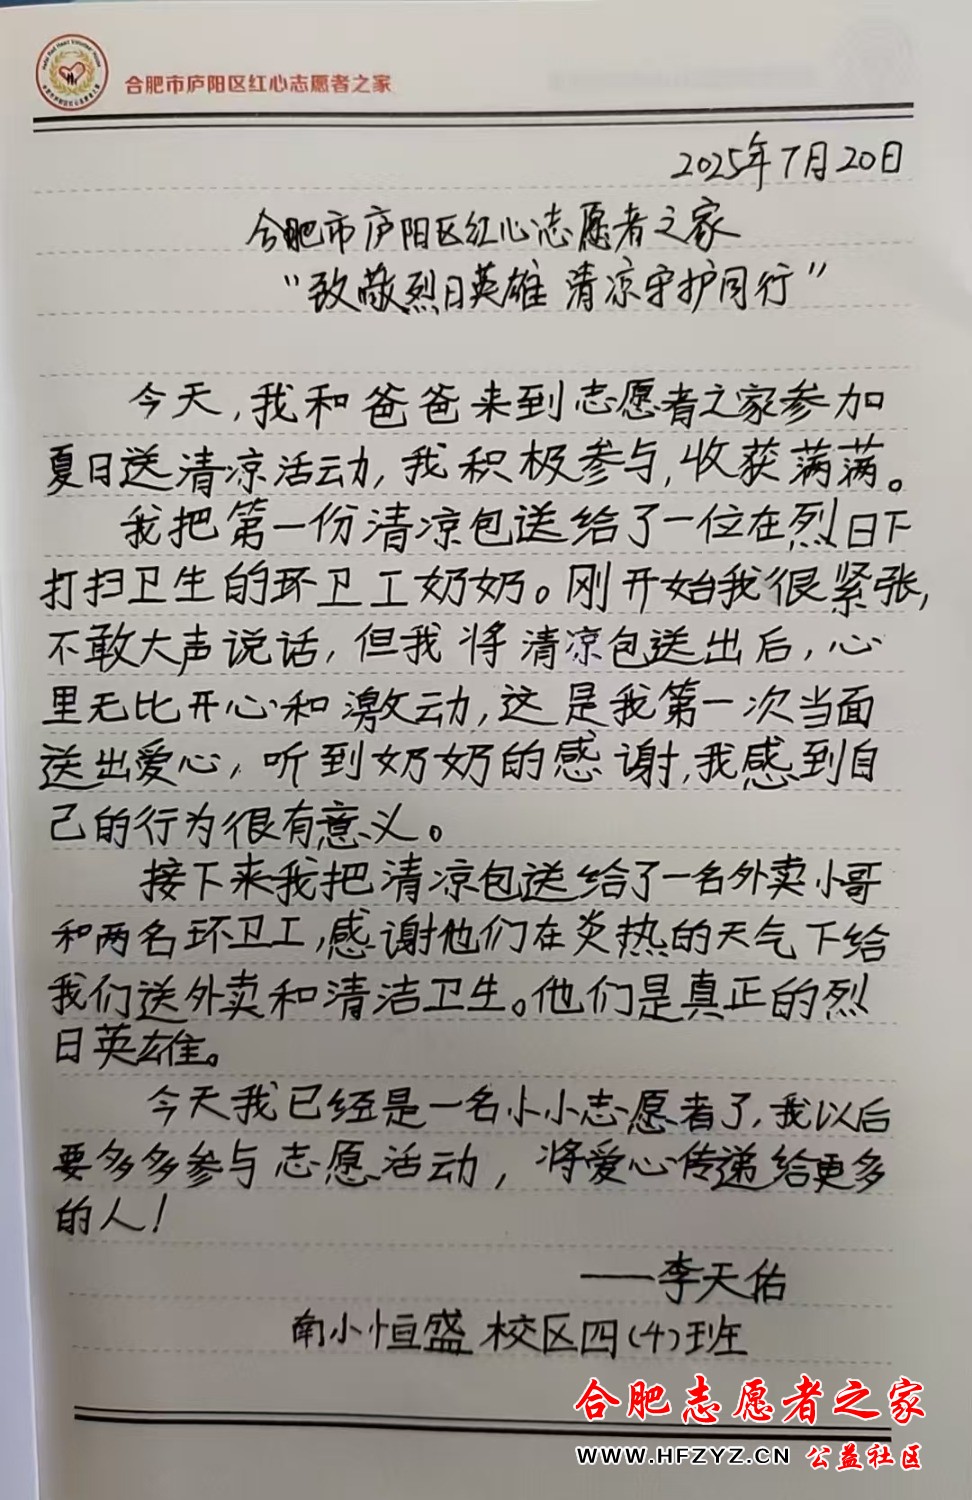 合肥市庐阳区红心志愿者之家
2025年7月20日
合肥市庐阳区红心志愿者之家
“致敬烈日英雄 清凉守护同行”
今天,我和爸爸来到志愿者之家参加
夏日送清凉活动,我积极参与,收获满满。
我把第一份清凉包送给了一位在烈日下
打扫卫生的环卫工奶奶。刚开始我很紧张,
不敢大声说话,但我将清凉包送出后,心
里无比开心和激动,这是我第一次当面
送出爱心,听到奶奶的感谢,我感到自
己的行为很有意义。
接下来我把清凉包送给了一名外卖小哥
和两名环卫工,感谢他们在炎热的天气下给
我们送外卖和清洁卫生。他们是真正的烈
日英雄。
今天我已经是一名小小志愿者了,我以后
要多多参与志愿活动,将爱心传递给更多
的人!
——李天佑
南小恒盛校区四(4)班
合肥志愿者之家
WWW.HFZYZ.CN 公益社区